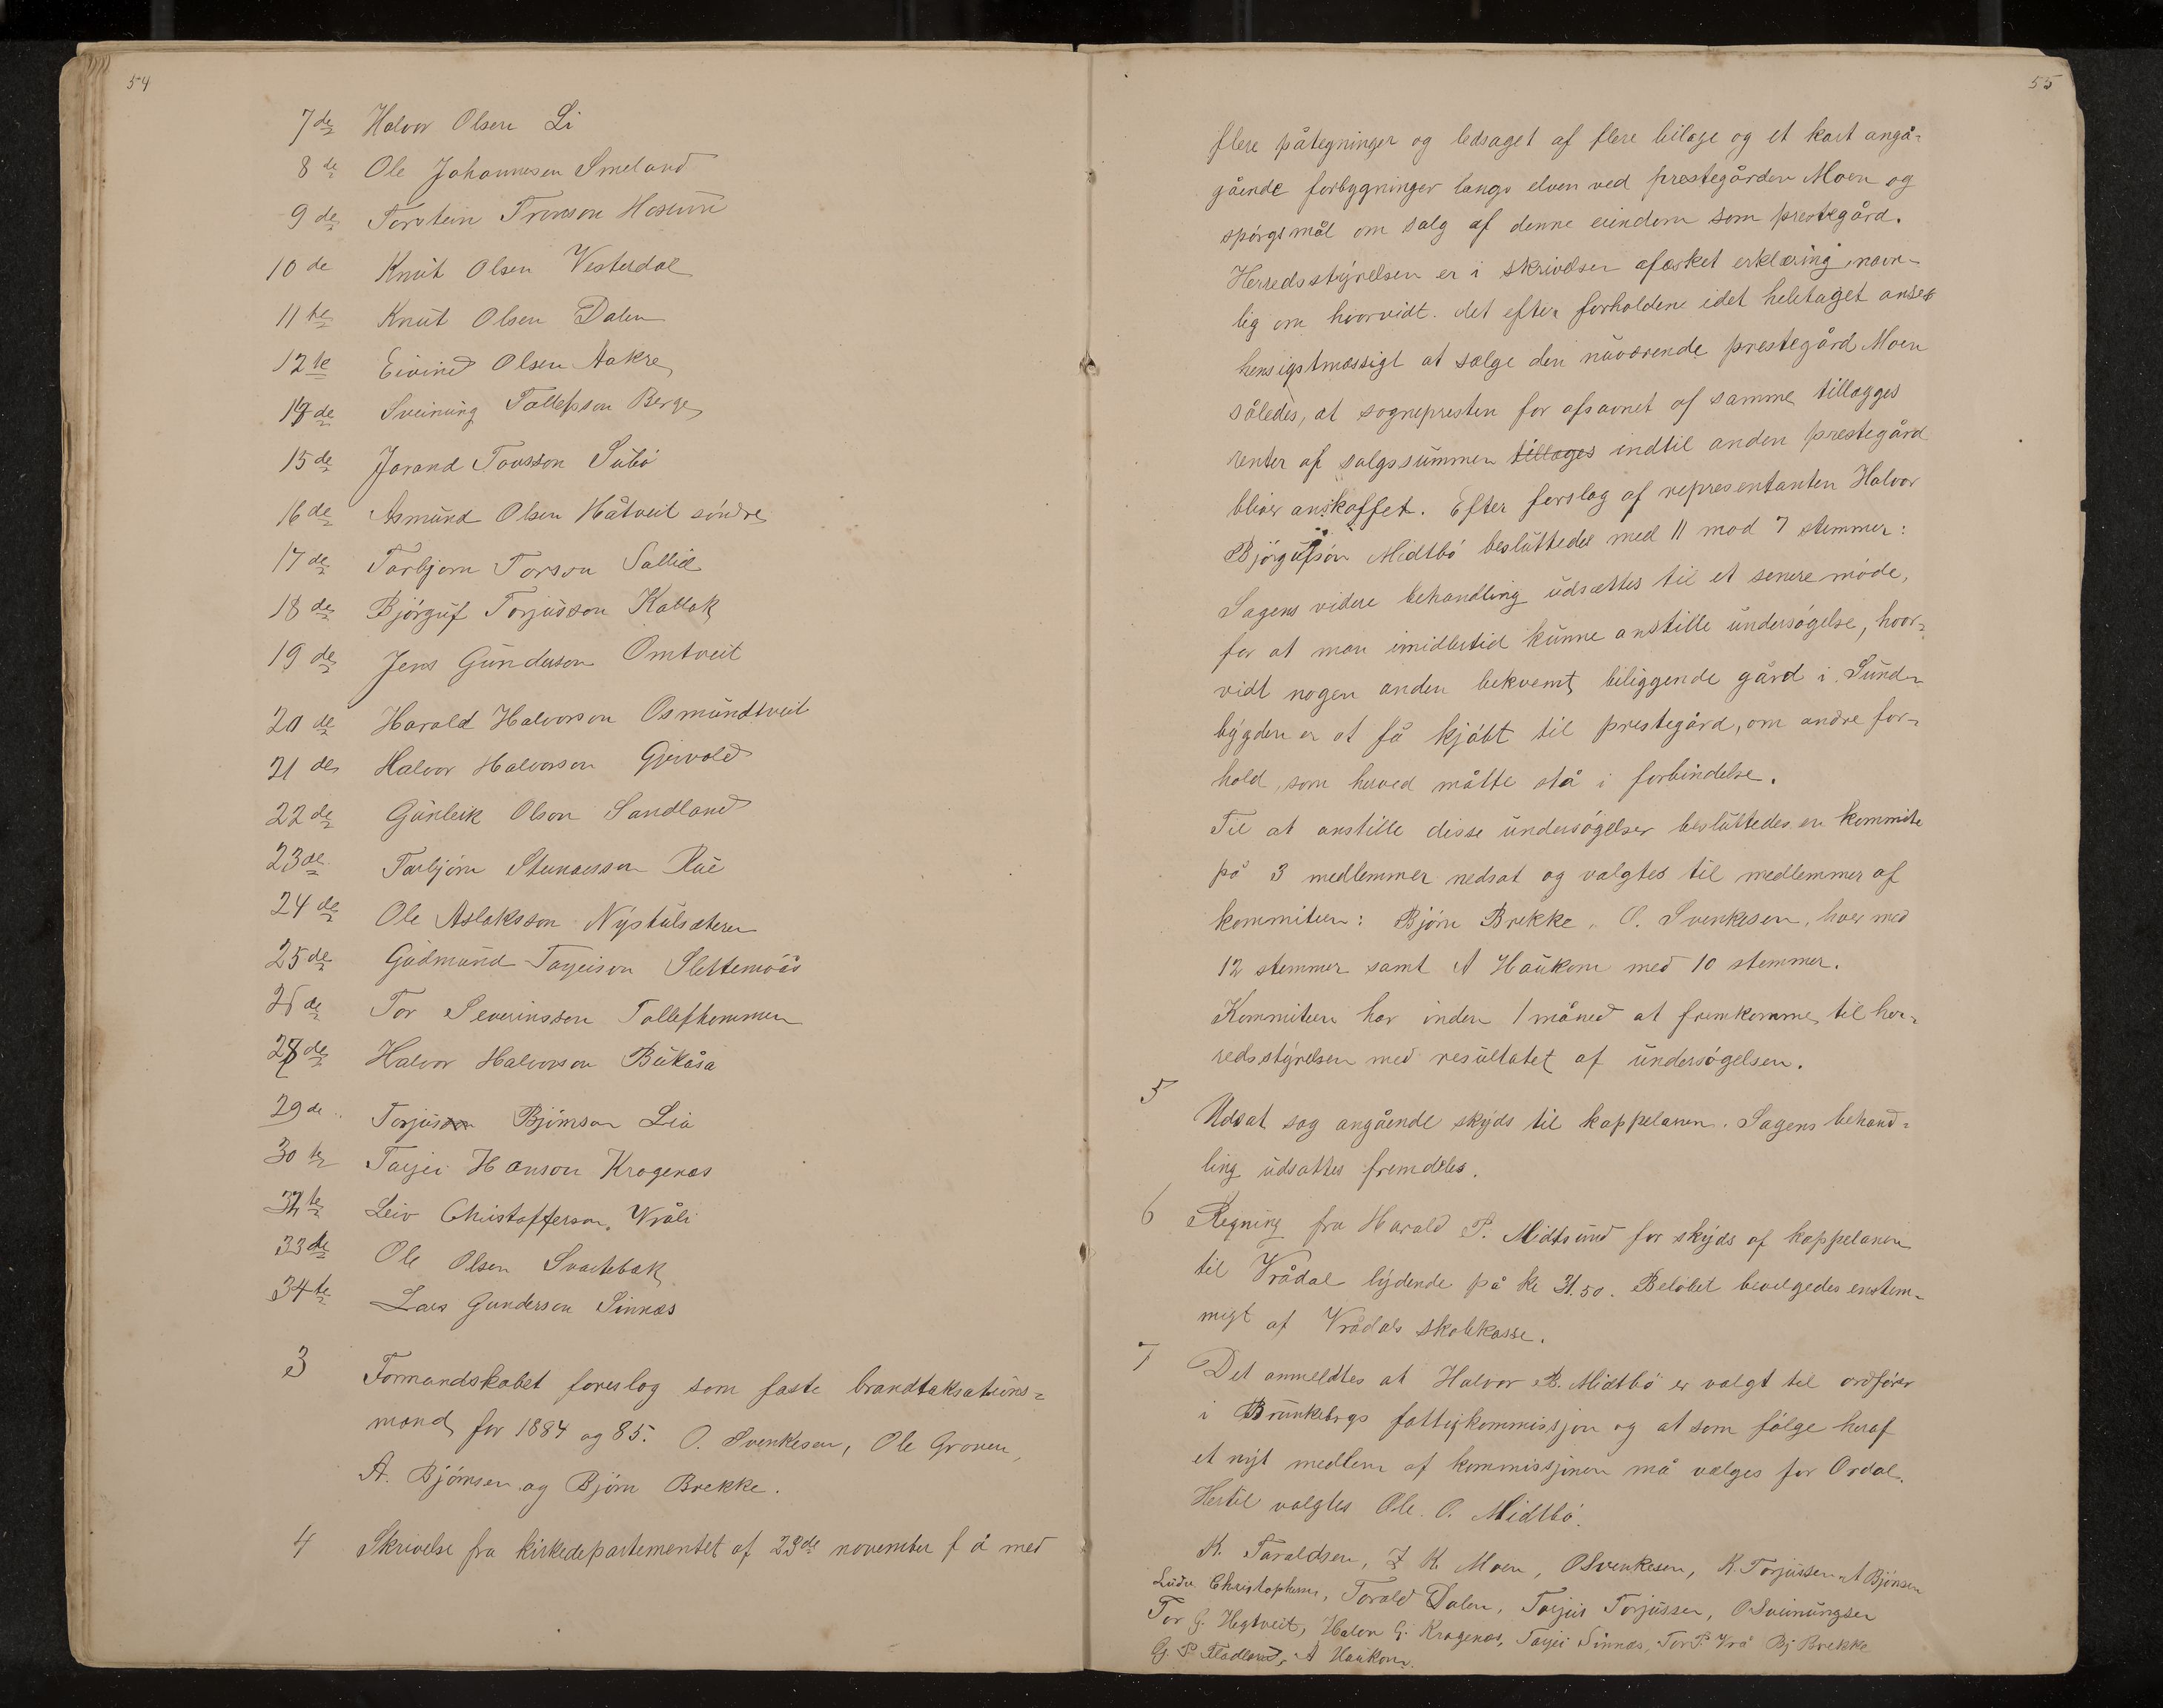 54
7de Halvor Olsen Li
8de Ole Johannesen Smeland
9de Torstein Tronson
10de Knut Olsen Vesterdal
11te Knut Olsen Dalen
12te Eivind Olsen Aakre
de Sveinung Tallefsson Berge
15de Jorand Tovsson
16de Asmund Olsen Håtveit söndre
17de Tarbjorn Torson
18de Björguf Torjusson Kallak
19de Jens Gunderson Omtveit
20de Harald Halvorson Osmundtveit
21de Halvor Halvorson Gjervold
22de Gunleik Olson Sandland
23de Tarbjörn Rue
24de Ole Aslaksson Nystulsæteren
25de Gudmund Slettemoås
de Tor Severinsson
28de Halvor Halvorson Bukåsa
29de Torjusson Björnson Lia
30te Tarjei Hanson Kragenæs
te Leiv Christofferson Vråli
33de Ole Olsen Svartebæk
34te Lars Gunderson Sinnæs
3 Formandskabet foreslog som faste brandtaksations=
mænd for 1884 og 85. O. Svenkesen, Ole Groven,
A. Björnsen og Björn Brekke.
4 Skrivelse fra kirkedepartementet af 23de november f å med
55
flere påtegninger og ledsaget af flere bilage og et kart angå=
gående forbygninger langs elven ved prestegården Moen og
spörgsmål om salg af denne eiendom som prestegård.
Herredsstyrelsen er i skrivelsen afæsket erklæring, navn-
lig om hvorvidt det efter forholdene idet heletaget anses
hensigtmæssigt at sælge den nuværende prestegård Moen
således, at sognepresten for afsavnet af samme tillægges
renter af salgssummen tillæges indtil anden prestegård
bliver anskaffet. Efter forslag af representanten Halvor
Björgufsön Midtbö besluttedes med 11 mod 7 stemmer:
Sagens videre behandling udsættes til et senere möde,
for at man imidlertid kunne anstille undersögelse, hvor=
vidt nogen anden bekvemt beliggende gård i Sund-
bygden er at få kjöbt til prestegård, om andre for-
hold, som herved måtte stå i forbindelse.
Til at anstille disse undersögelser besluttedes en kommite
på 3 medlemmer nedsat og valgtes til medlemmer af
kommiteen: Björn Brekke, O. Svenkesen, hver med
12 stemmer samt A Haukom med 10 stemmer.
Kommiteen har inden 1 måned at fremkomme til her=
redsstyrelsen med resultatet af undersögelsen.
5 Udsat sag angående skyds til kappelanen. Sagens behand=
ling udsattes fremdeles.
6 Regning fra Harald P. Midtsund for skyds af kappelanen
til Vrådal lydende på kr 31.50. Belöbet bevilgedes enstem-
migt af Vrådals skolekasse.
7 Det anmeldtes at Halvor B. Midtbö er valgt til ordförer
i Brunkebergs fattigkommissjon og at som fölge heraf
et nyt medlem af kommissjonen må vælges for Ordal.
Hertil valgtes Ole O. Midtbö.
K. Taraldsen, K. Moen, OSvenkesen, K. Torjussen A Björnsen
Christophersen, Torald Dalen, Tarjei Torjussen, OSveinungsen
Tor G. Hegtveit, Halvor G. Kragenæs, Tarjei Sinnæs, Tor P. Vrå Bj Brekke
G. P. Fladland, A Haukom.